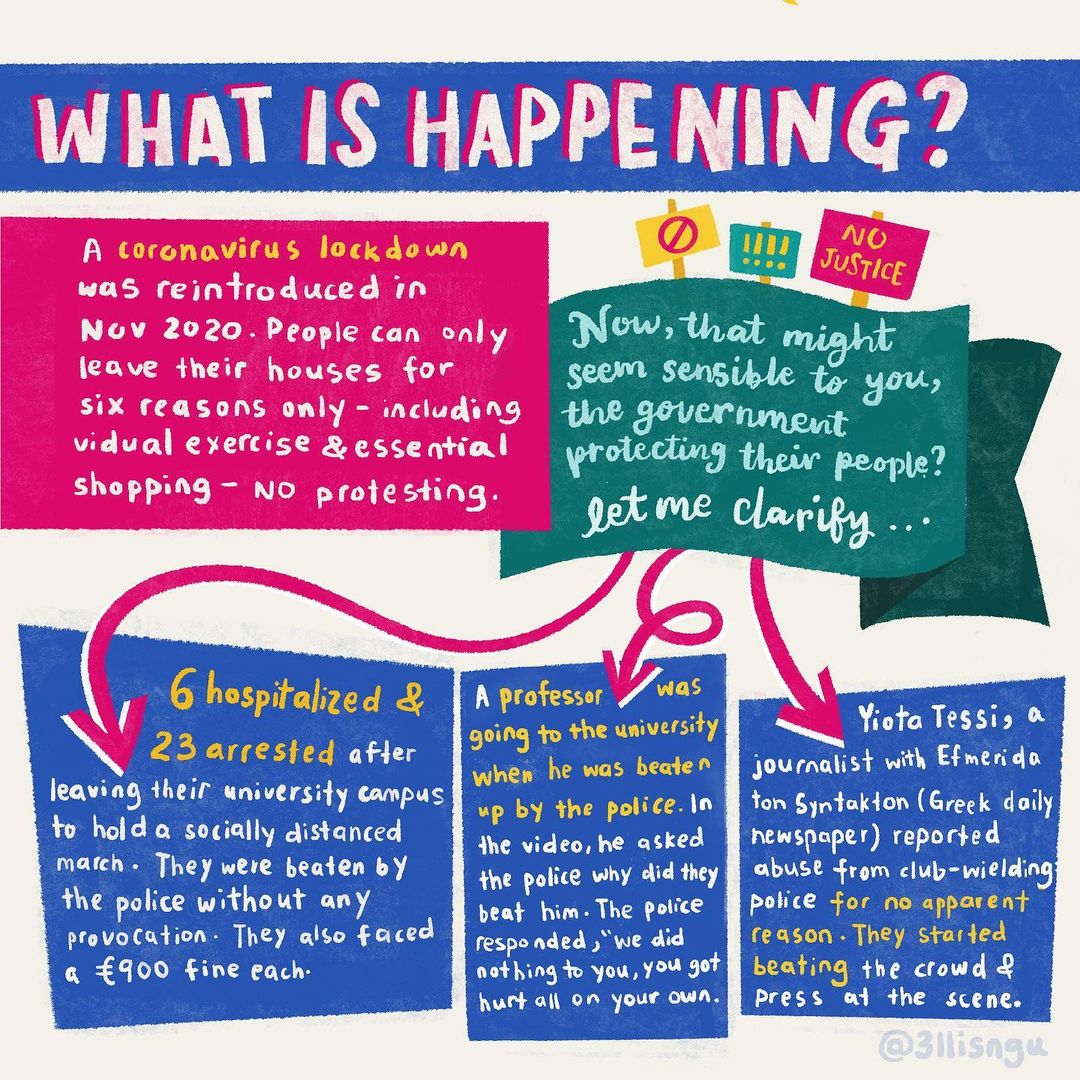 WHAT IS HAPPENING?
A coronavirus lockdown
was reintroduced in
Nov 2020. People can only
leave their houses for
six reasons only - including
vidual exercise & essential
shopping - NO protesting.
!!!!
NO
JUSTICE
Now, that might
seem sensible to you,
the government
protecting their people?
let me clarify...
6 hospitalized &
23 arrested after
leaving their university campus
to hold a socially distanced
march. They were beaten by
the police without any
provocation. They also faced
a €900 fine each.
A professor was
going to the university
when he was beaten
up by the police. In
the video, he asked
the police why did they
beat him. The police
responded, "we did
nothing to you, you got
hurt all on your own.
Yiota Tessi, a
journalist with Efmerida
ton Syntakton (Greek daily
newspaper) reported
abuse from club-wielding
police for no apparent
reason. They started
beating the crowd &
press at the scene.
@3llisngu